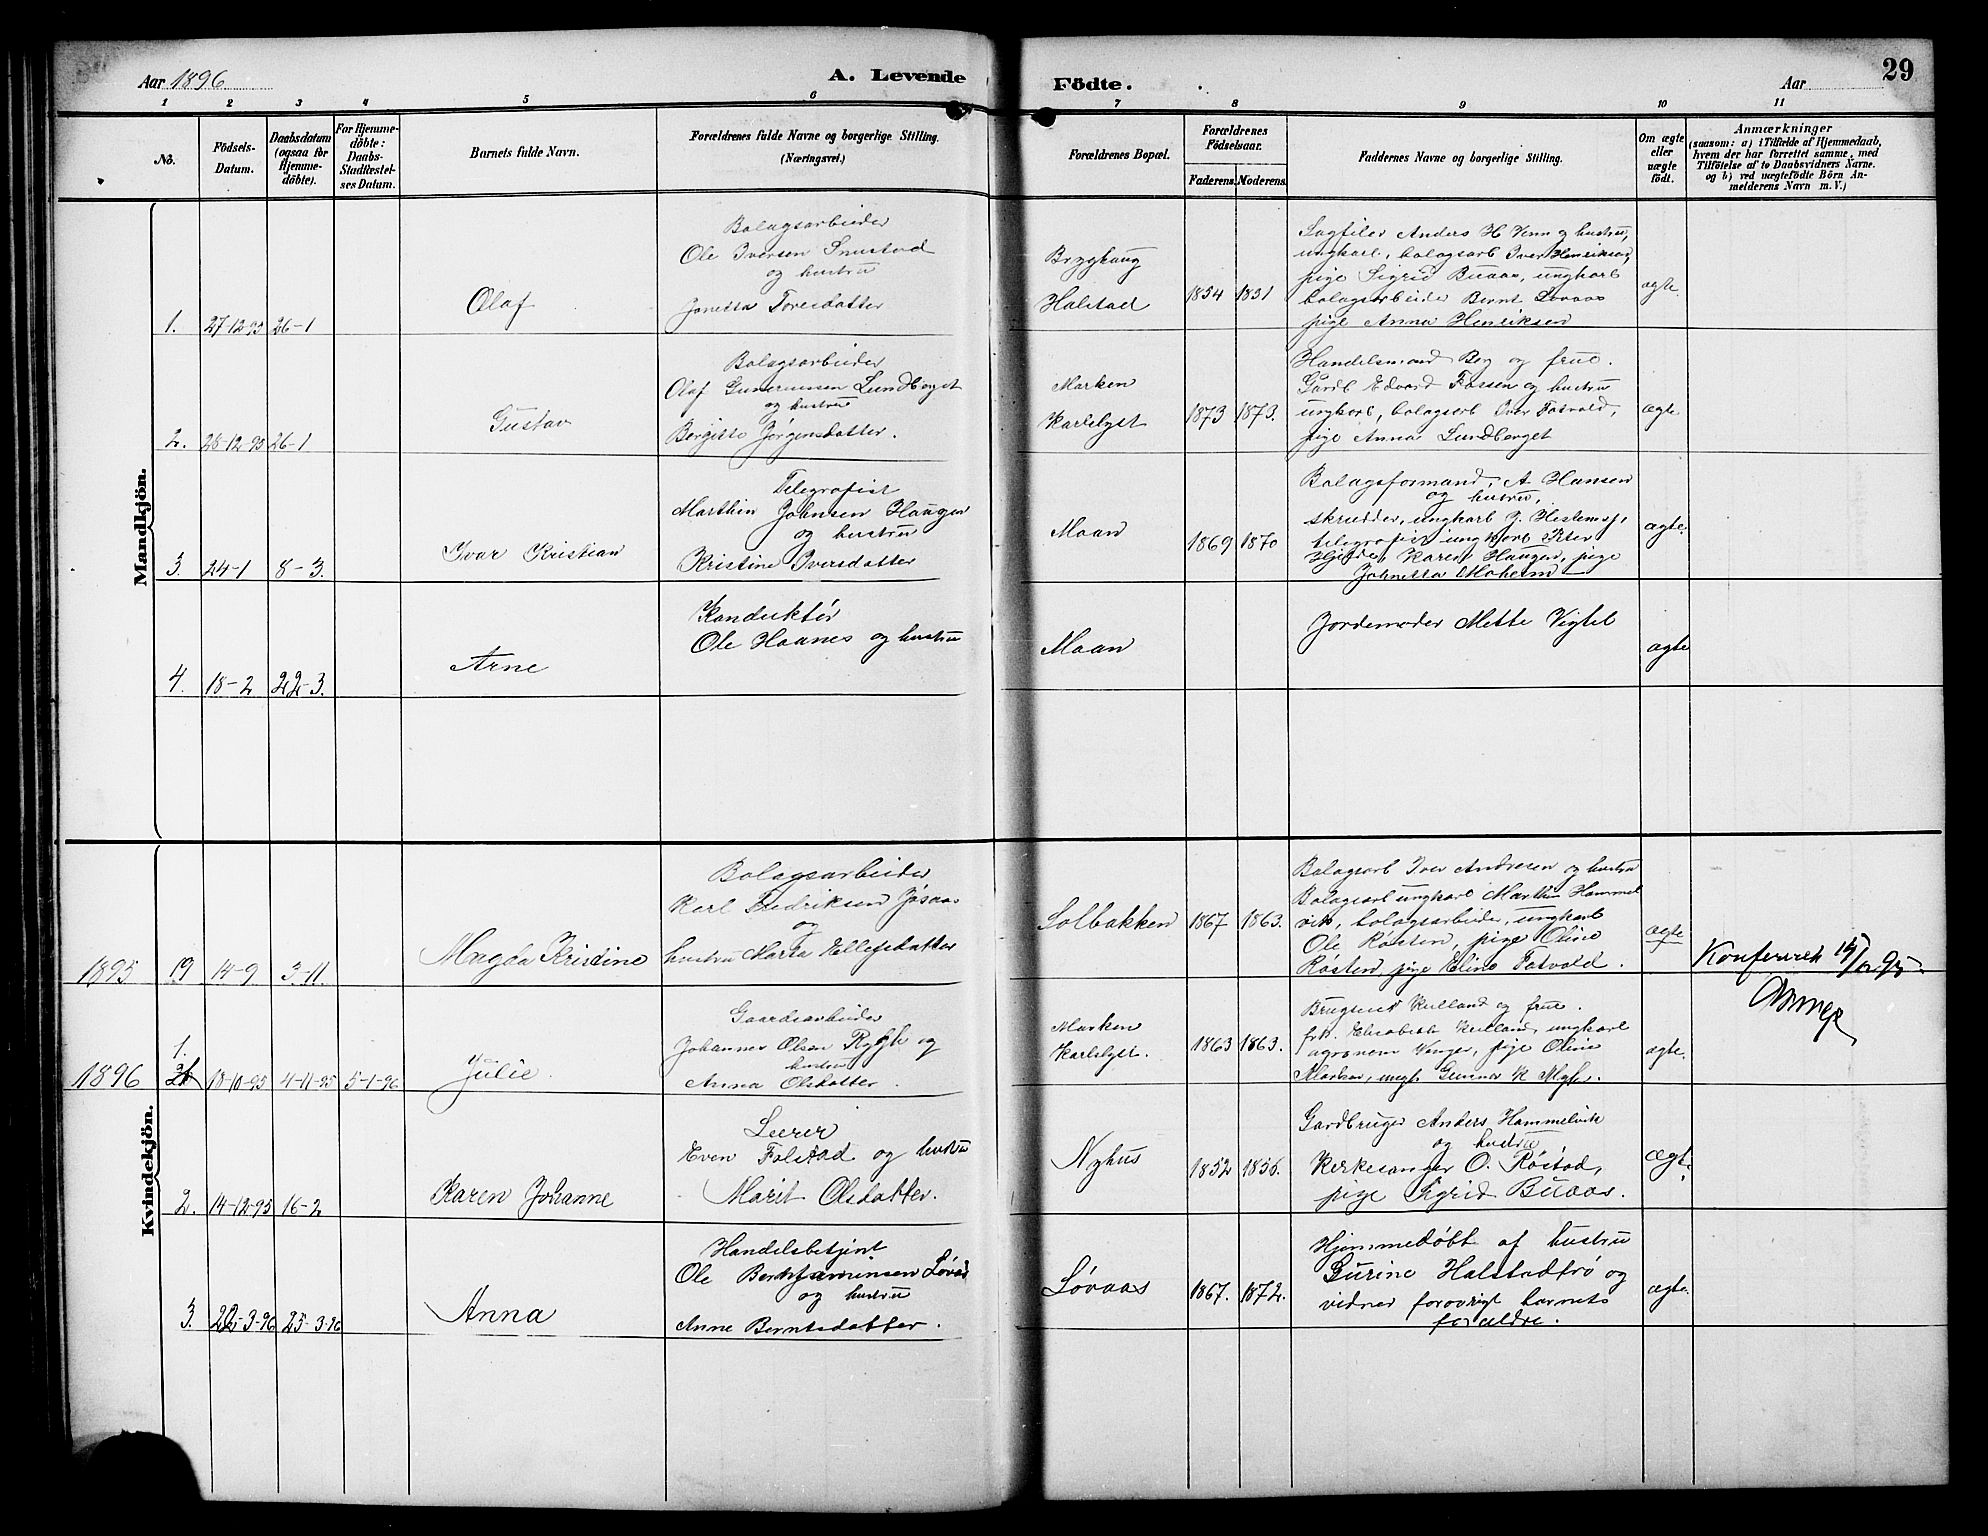 Aar 1896
A. Levende
Födte.
Aar
29
1 2 3 4 5 6 7 8 9 10 11
No.
Födsels-
Datum.
Daabsdatum
(ogsaa for
Hjemme-
döbte).
For Hjemme-
döbte:
Daabs-
Stadfestel-
ses Datum.
Barnets fulde Navn.
Forældrenes fulde Navne og borgerlige Stilling.
(Næringsvei.)
Forældrenes Bopæl.
Forældrenes
Födselsaar.
Faderens. Moderens.
Faddernes Navne og borgerlige Stilling.
Om ægte
eller
uægte
födt.
Anmærkninger
(saasom: a) i Tilfælde af Hjemmedaab,
hvem der har forrettet samme, med
Tilföielse af to Daabsvidners Navne.
og b) ved uægtefödte Börn An-
melderens Navn m. V.)
Mandkjön.
1. 27-12-95 26-1
Olaf
Bolagsarbeider
Ole Iversen Smustad
og hustru
Jonetta Toresdatter
Bryghaug
Halstad
1854 1851
Sagfiler Anders H Venn og hustru,
ungkarl, bolagsarb Iver Henriksen,
pige Sigrid Buaas, ungkarl
bolagsarbeider Bernt Løvaas
pige Anna Henriksen
ægte
2. 28-12-95 26-1
Gustav
Bolagsarbeider
Olaf Gunerius­sen Lundberget
og hustru
Bergitte Jørgensdatter.
Marken
Karlslyst
1873 1873.
Handelsmand Berg og frue.
Gardb Edvard Fossen og hustru
ungkarl, bolagsarb Over Fosvold,
pige Anna Lundberget
ægte
3. 24-1 8-3.
Ivar Kristian
Telegrafist
Marthin Johnsen Haugen
og hustru
Kristine Iversdatter
Moan
1869 1870
Bolagsformand, A Hansen
og hustru,
skrædder, ungkarl J. Hestemo,
telegrafist ungkarl Peter
Karen Haugen, pige
Johnetta Moheim
ægte.
4. 18-2 22-3.
Arne
Konduktør
Ole Haanes og hustru
Moan
Jordemoder Mette Vigtel
ægte
Kvindekjön.
1895 19 14-9 3-11.
Magda Kristine
Bolagsarbeider
Karl Fredriksen Jøsaas
og
hustru Marta Ellefsdatter
Solbakken
1867 1863.
Bolagsarb Iver Andresen og hustru
Bolagsarb ungkarl Marthin Hammel
vik, bolagsarbeider, ungkarl
Ole Røsten, pige Oline
Røsten, pige Eline Fosvold.
ægte
Konfereret 15/12 95
1896 1. 18-10-95 4-11-95 5-1-96
Julie.
Gaardsarbeider
Johannes Olsen Rygh og
hustru
Anna Olsdatter.
Marken
Karlslyst.
1863 1863.
Brugseier Kulland og frue.
frk. Elisabeth Kulland, ungkarl
agronom Wenger, pige Oline
Marken, ungk. Gunnar K Myhr.
ægte.
2. 14-12-95 16-2
Karen Johanne
Lærer
Even Folstad og hustru
Marit Olsdatter.
Nyhus
1852 1856.
Gardbruger Anders Hammelvik
og hustru
Kirkesanger O. Røstad,
pige Sigrid Buaas.
ægte.
3. 22-3-96 25-3-96
Anna
Handelsbetjent
Ole Benjaminsen Løvaas
og hustru
Anne Berntsdatter.
Løvaas
1867. 1872.
Hjemmedøbt af hustru
Gurine Halstadtrø og
vidner forøvrigt barnets
forældre.
ægte.